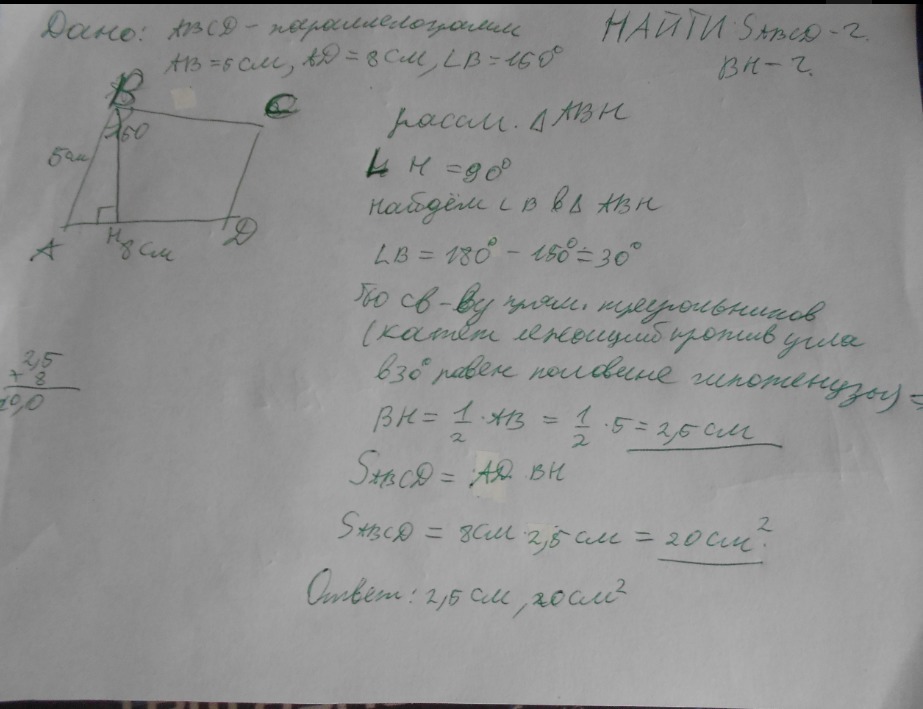 Дано: ABCD - параллелограмм
AB = 5 см, AD = 8 см, ∠B = 150°
НАЙТИ: SABCD - ?
BH - ?
B
C
150
5 см
A
H
D
8 см
рассм. △ ABH
∠ H = 90°
найдём ∠ B в △ ABH
∠B = 180° - 150° = 30°
По св-ву прям. треугольников
(катет лежащий против угла
в 30° равен половине гипотенузы) =
BH = 1/2 · AB = 1/2 · 5 = 2,5 см
SABCD = AD · BH
SABCD = 8 см · 2,5 см = 20 см².
Ответ: 2,5 см, 20 см²
2,5
× 8
20,0